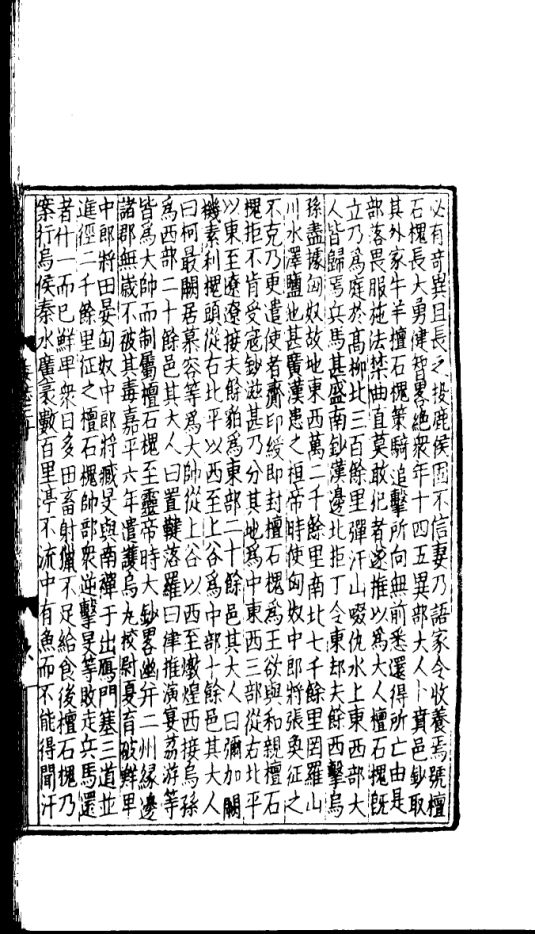 必有奇異且長之投鹿侯固不信妻乃語家令收養焉號檀
石槐長大勇健智畧絶衆年十四五異部大人卜賁邑鈔取
其外家牛羊檀石槐策騎追擊所向無前悉還得所亡由是
部落畏服施法禁曲直莫敢犯者遂推以爲大人檀石槐旣
立乃爲庭於高柳北三百餘里彈汗山啜仇水上東西部大
人皆歸焉兵馬甚盛南鈔漢邊北拒丁令東却夫餘西擊烏
孫盡據匈奴故地東西萬二千餘里南北七千餘里罔羅山
川水澤鹽池甚廣漢患之桓帝時使匈奴中郎將張奐征之
不克乃更遣使者齎印綬即封檀石槐爲王欲與和親檀石
槐拒不肯受寇鈔滋甚乃分其地爲中東西三部從右北平
以東至遼遼接夫餘貊爲東部二十餘邑其大人曰彌加闕
機素利槐頭從右北平以西至上谷爲中部十餘邑其大人
曰柯最闕居慕容等爲大帥從上谷以西至燉煌西接烏孫
爲西部二十餘邑其大人曰置鞬落羅曰律推演宴荔游等
皆爲大帥而制屬檀石槐至靈帝時大鈔畧幽并二州緣邊
諸郡無歲不被其毒嘉平六年遣護烏九校尉夏育破鮮卑
中郎將田晏匈奴中郎將臧旻與南單于出鴈門塞三道並
進徑二千餘里征之檀石槐帥部衆逆擊旻等敗走兵馬還
者什一而已鮮卑衆日多田畜射獵不足給食後檀石槐乃
案行烏侯秦水廣袤數百里渟不流中有魚而不能得聞汗